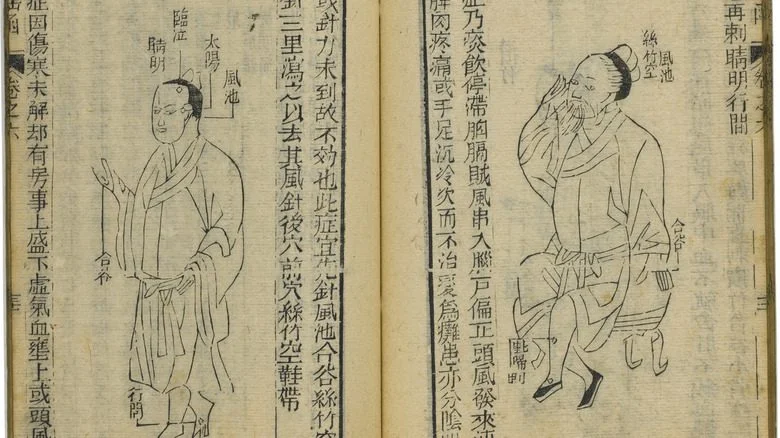 卷之六
三
再刺睛明行間
風池
絲竹空
合谷
症乃痰飲停滯胸膈賊風串入腦戶偏正頭風發來
肉疼痛或手足沉冷久而不治變為癱患亦分陰
或針力未到故不效也此症宜先針風池合谷絲竹空
針三里瀉之以去其風針後穴前穴絲竹空鞋帶
風池
太陽
臨泣
睛明
合谷
行間
症因傷寒未解却有房事上盛下虛氣血壅上或頭風
卷之六
三